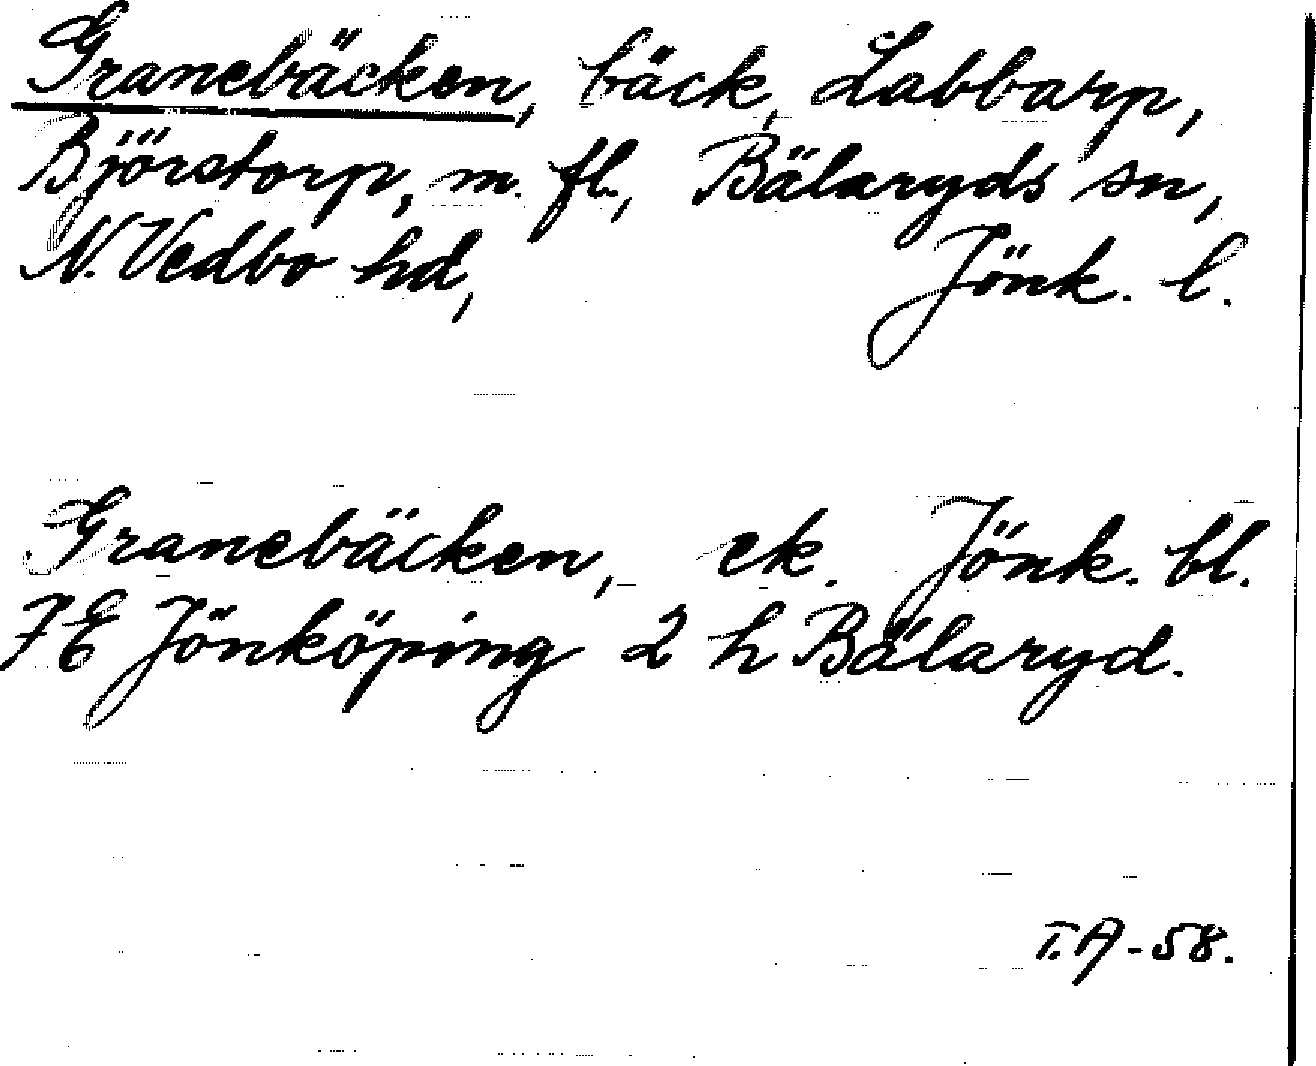 Granebäcken, bäck, Labbarp,
Björstorp, m. fl., Bälaryds sn,
N. Vedbo hd, Jönk. l.
Granebäcken, ek. Jönk. bl.
7E Jönköping 2 h Bälaryd.
T.A-58.